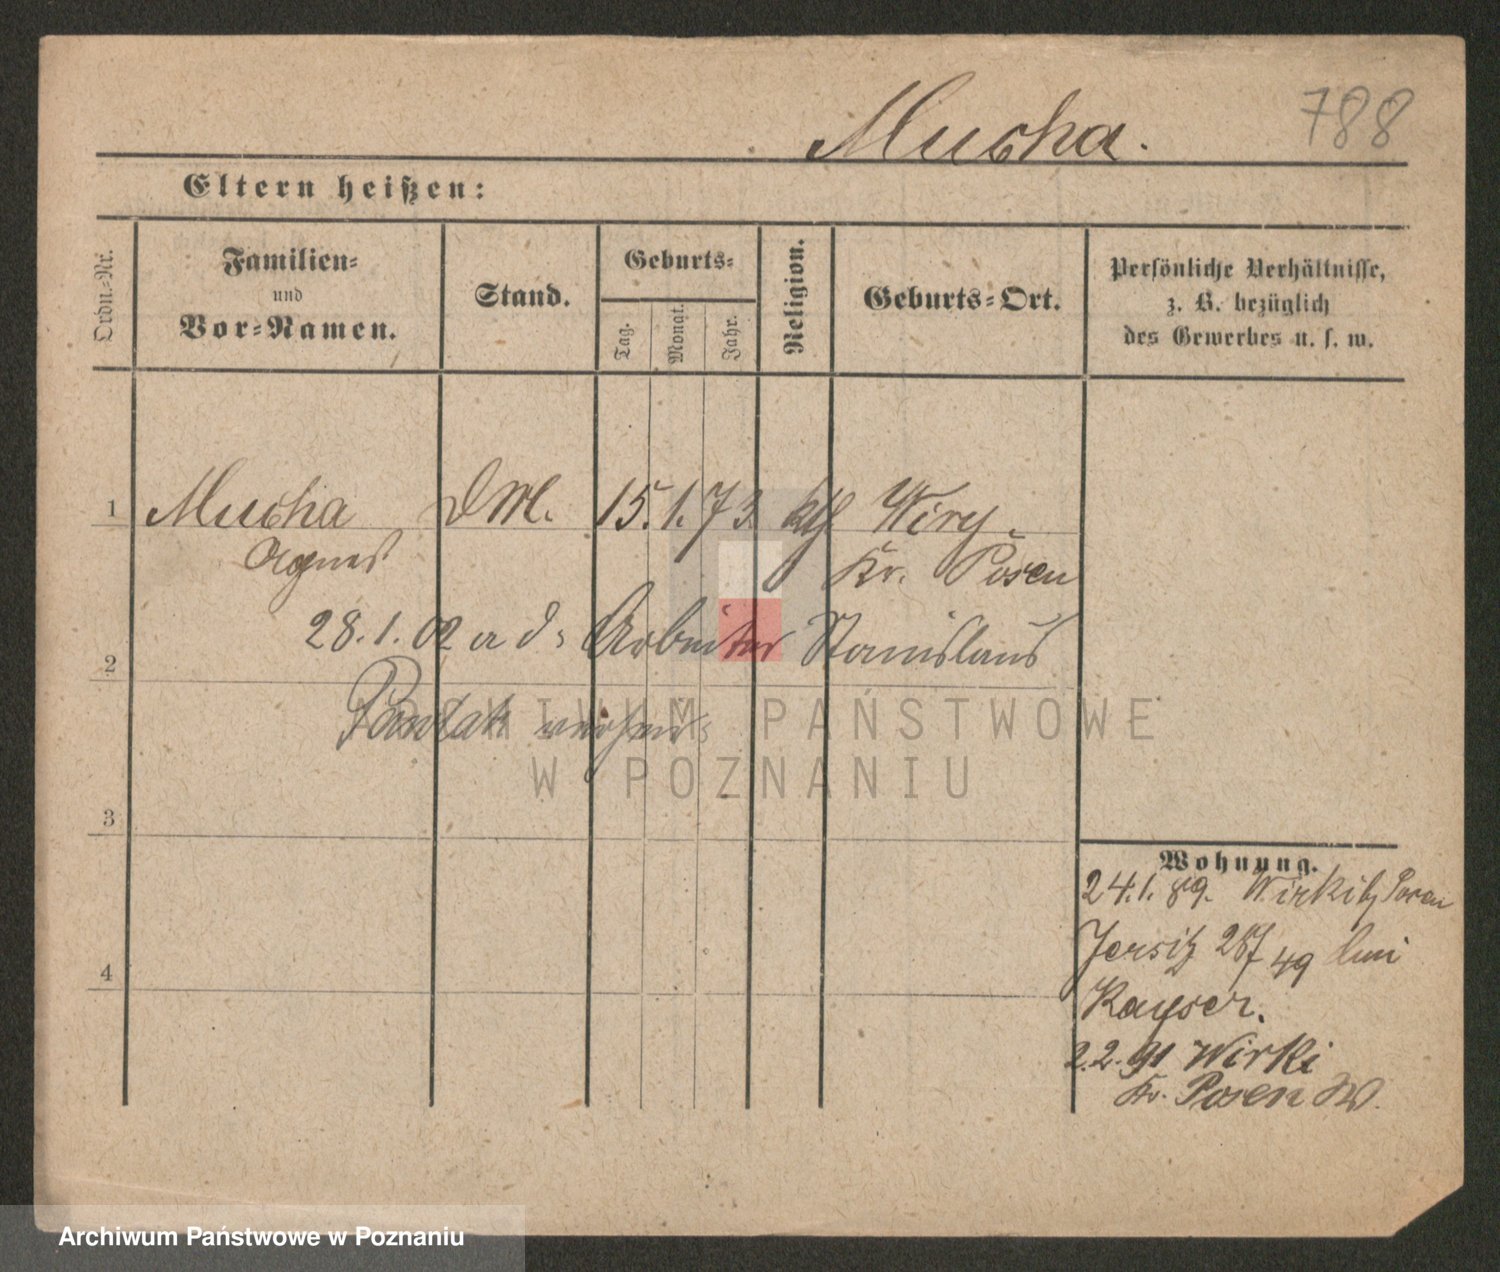 Mucha.
788
Eltern heißen:
Ordn.-Nr.
Familien-
und
Vor-Namen.
Stand.
Geburts-
Tag.
Monat.
Jahr.
Religion.
Geburts-Ort.
Persönliche Verhältnisse,
z. B. bezüglich
des Gewerbes u. s. w.
1 Mucha DM. 15. 1. 73. kth Wiry.
Agnes Kr. Posen
28.1.02 a d: Arbeiter Stanislaus
2
ARCHIWUM PAŃSTWOWE
W POZNANIU
3
Wohnung.
24.1.89. Posen
Jersitz 267/49 bei
Kayser.
4
2.2.91 Wirki
Kr. Posen W.
Archiwum Państwowe w Poznaniu